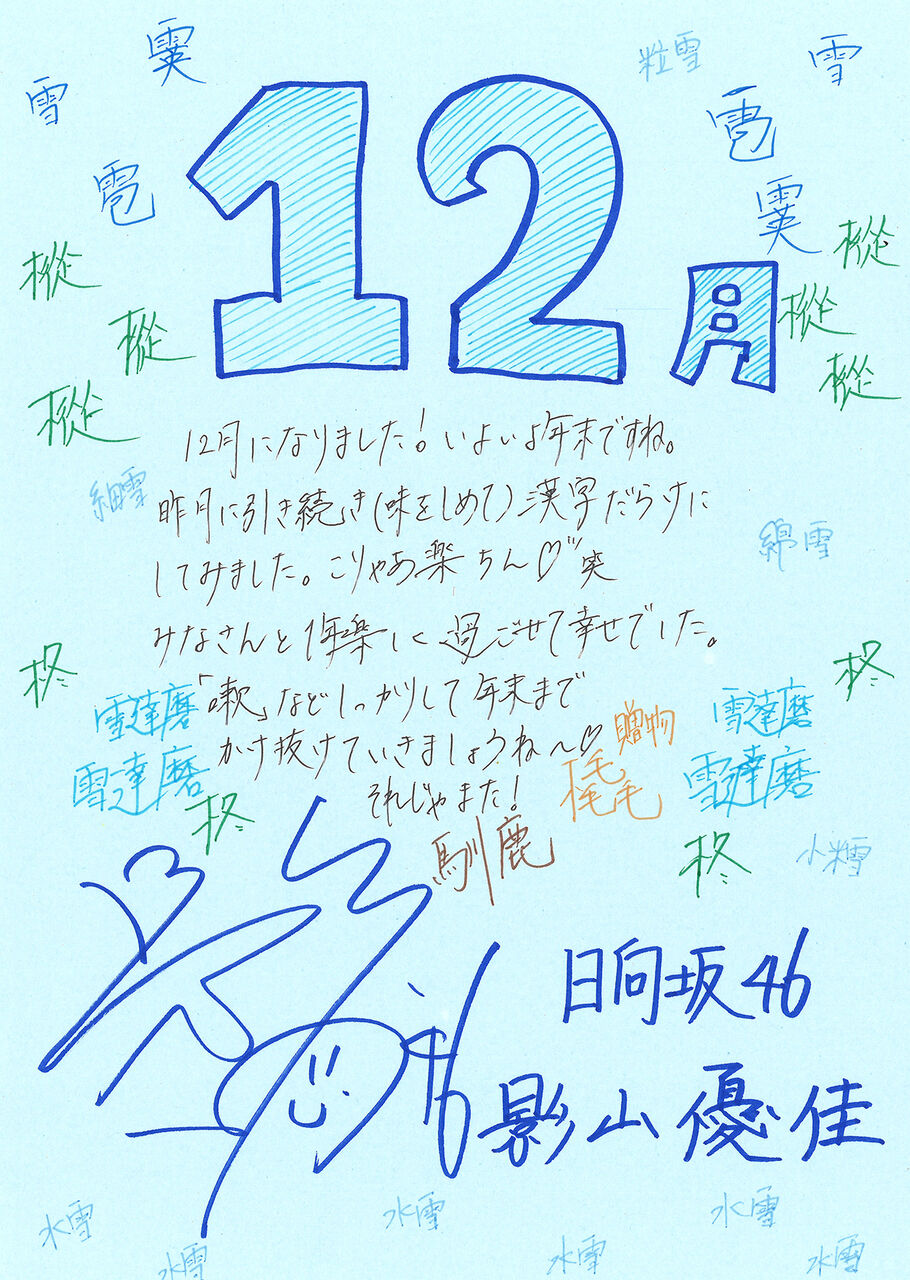 霙
雪
粒雪
雪
雹
雹
霙
12月
樅
樅
樅
樅
樅
樅
12月になりました!いよいよ年末ですね。
昨月に引き続き(味をしめて)漢字だらけに
してみました。こりゃあ楽ちん♡笑
みなさんと1年楽しく過ごせて幸せでした。
「嗽」などしっかりして年末まで
かけ抜けていきましょうね〜♡
それじゃまた!
細雪
綿雪
柊
柊
雪達磨
雪達磨
雪達磨
雪達磨
贈物
橇
馴鹿
柊
柊
小米雪
46
日向坂46
影山優佳
水雪
水雪
水雪
水雪
水雪
水雪